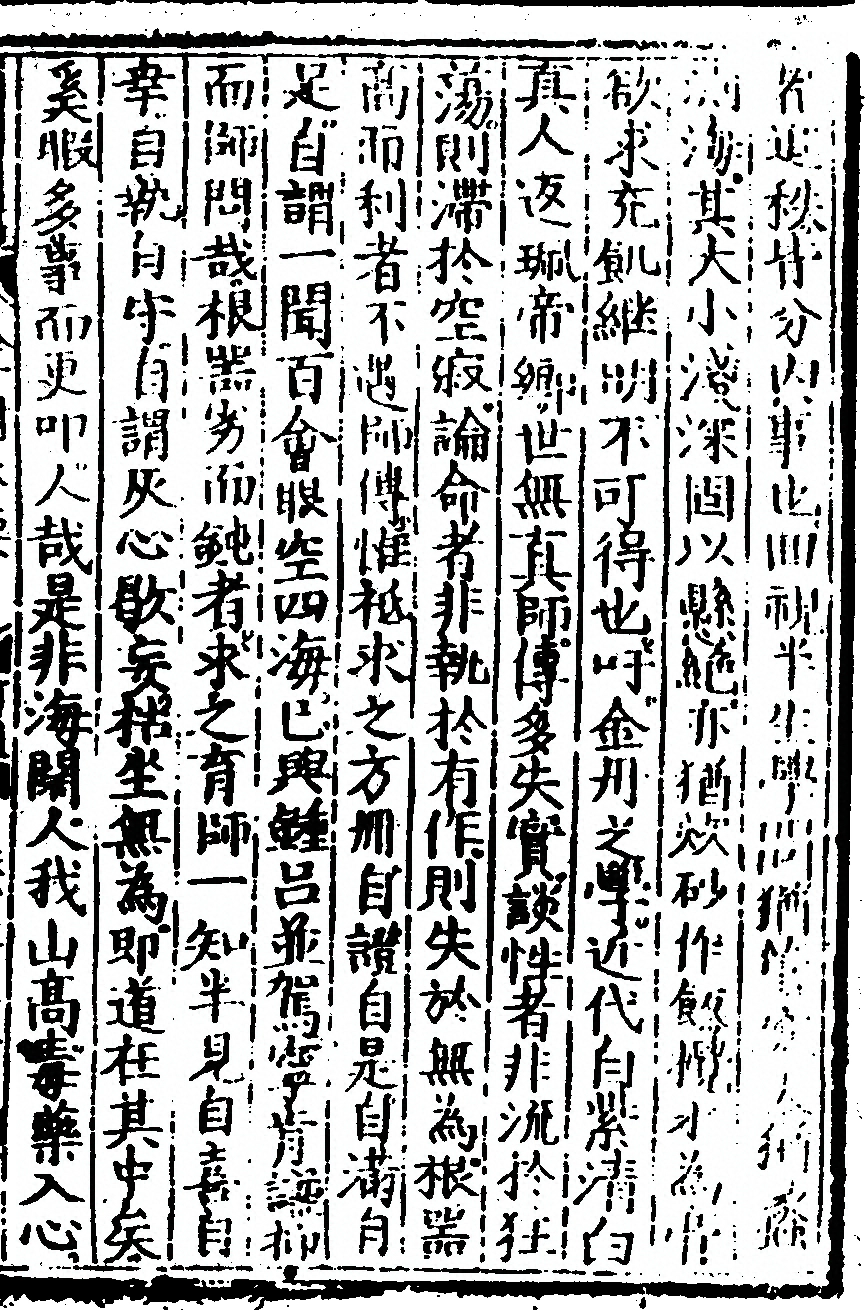 者近秋皆分內事也回視半生學
測海其大小淺深固以懸絶亦猶炊砂作飯機才為
欲求充飢継明不可得也吁金丹之學近代白紫清白
真人返珮帝鄉世無真師傳多失實談性者非流於狂
蕩則滯於空寂論命者非執於有作則失於無為根噐
高而利者不遇師傳惟袛求之方冊自證自是自滿自
足自謂一聞百會眼空四海已與鍾呂並駕寧肯謙抑
而師問哉根噐劣而鈍者求之盲師一知半見自喜自
幸自執自守自謂灰心歇妄枯坐無為即道在其中矣
奚暇多事而更叩人哉是非海闊人我山高毒藥入心